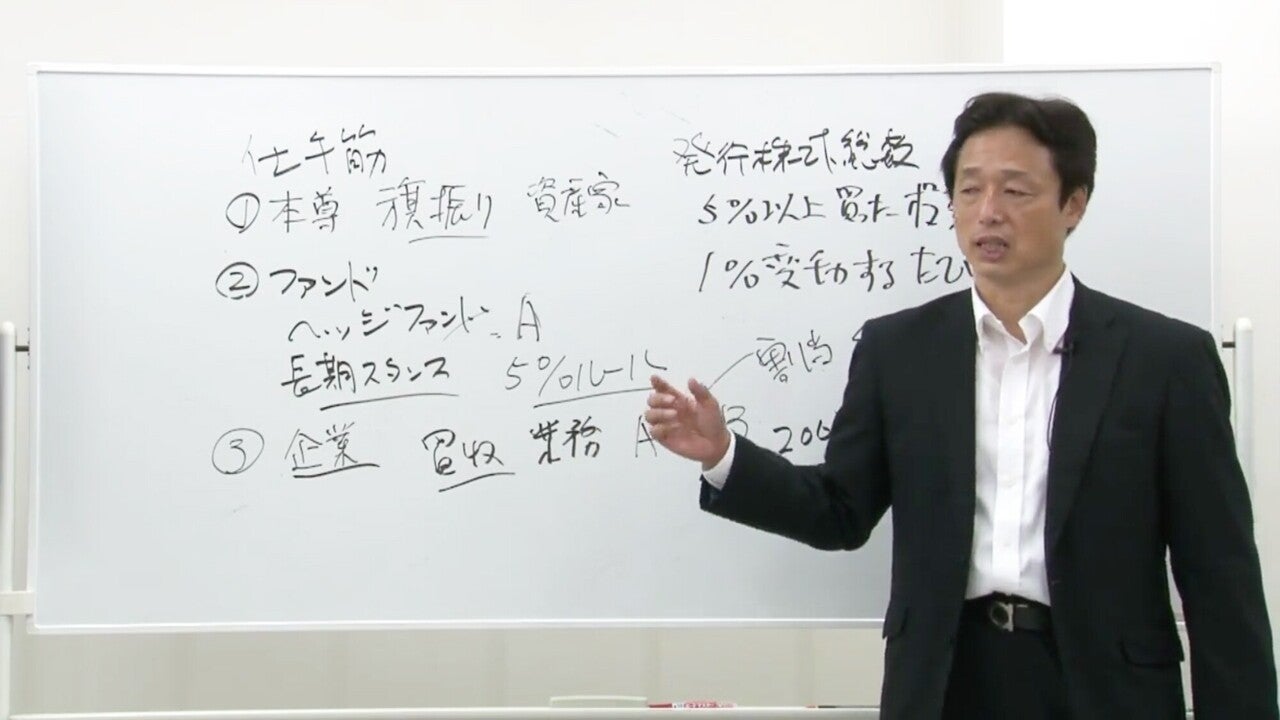 仕手筋
①本尊 旗振り 資産家
②ファンド
ヘッジファンド A
長期スタンス 5%ルール
③企業 買収 業務 A B 200
発行株式総数
5%以上買った投
1%変動するたび
割当